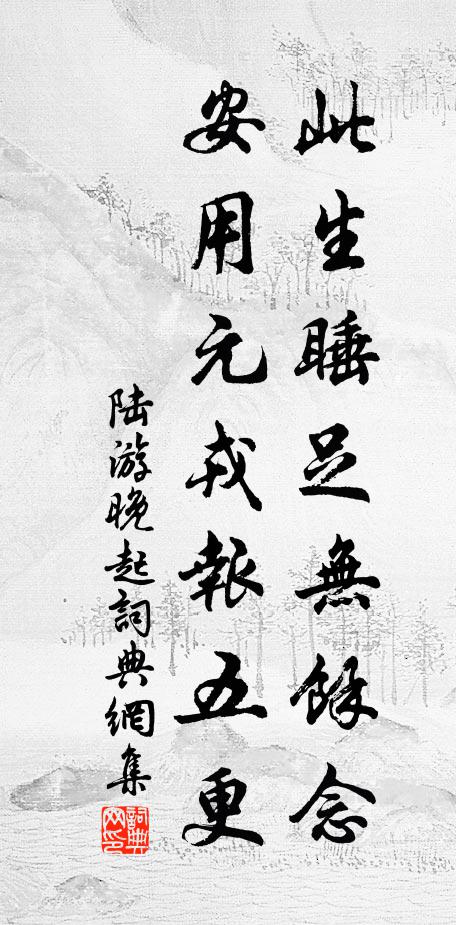 此生睡足無餘念
安用元戎報五更
陆游晚起詞典網集
詞典网印